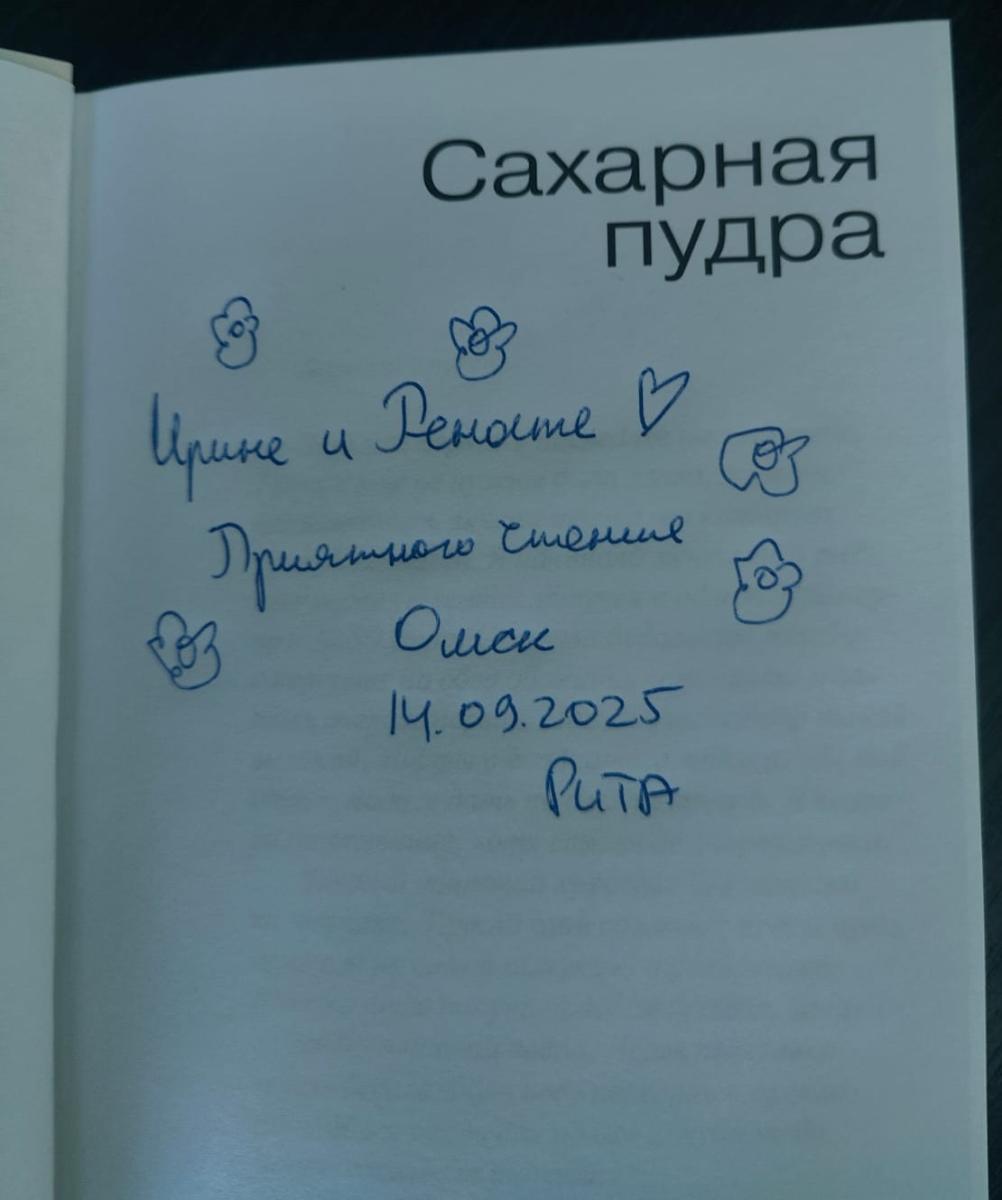 Сахарная
пудра
Ирине и Ренате
Приятного чтения
Омск
14.09.2025
РИТА